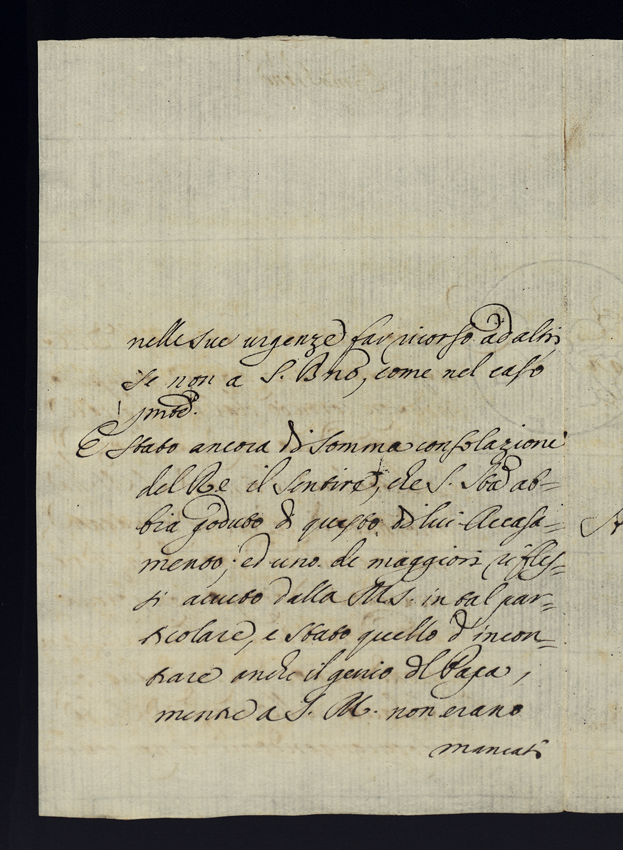 nelle sue urgenze far ricorso ad altri
se non a S. Bne, come nel caso
pnte.
È stato ancora di somma consolazione
del Re il sentire, che S. Stà ab=
bia goduto di questo di lui Accasa=
mento; ed uno de maggiori rifles=
si avuto dalla M.S. in tal par=
ticolare, e stato quello d'incon=
trare anche il genio del Papa,
mentre a S. M. non erano
mancati